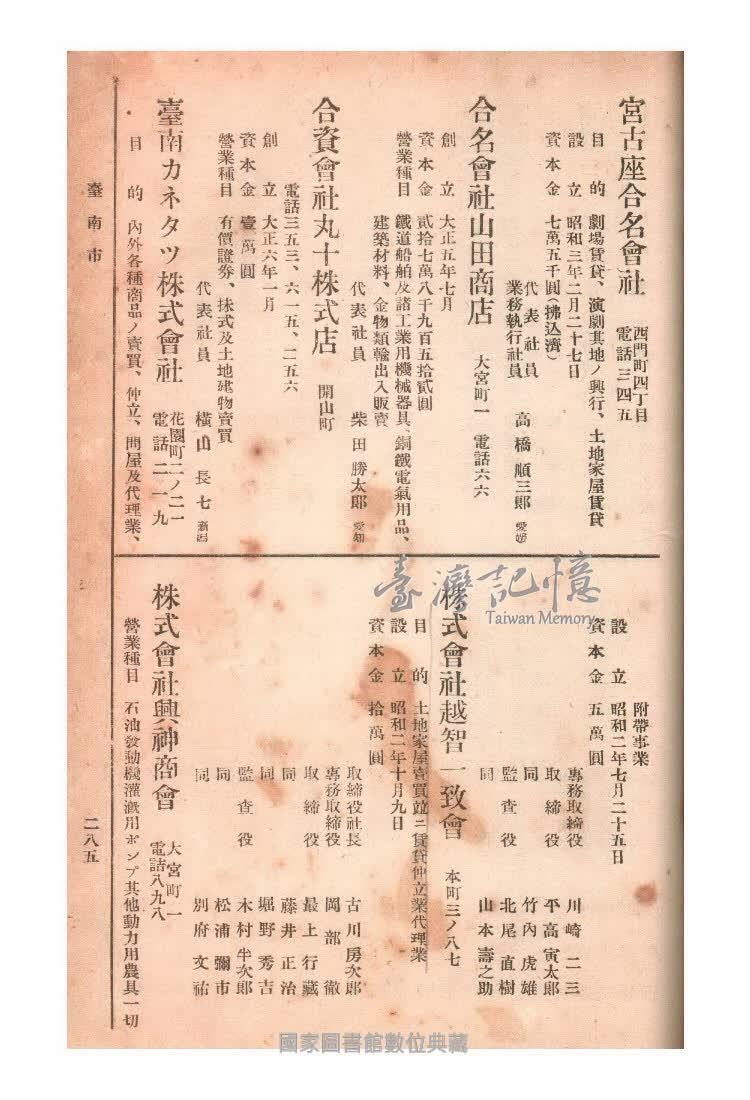 宮古座合名會社
西門町四丁目
電話三四五
目的 劇場賃貸、演劇其地ノ興行、土地家屋賃貸
設立 昭和三年二月二十七日
資本金 七萬五千圓(拂込濟)
代表社員
業務執行社員
高橋順三郎 愛媛
合名會社山田商店 大宮町一 電話六六
創立 大正五年七月
資本金 貳拾七萬八千九百五拾貳圓
營業種目 鐵道船舶及諸工業用機械器具、銅鐵電氣用品、
建築材料、金物類輸出入販賣
代表社員 柴田勝太郎 愛知
合資會社丸十株式店 開山町
電話三五三、六一五、二五六
創立 大正六年一月
資本金 壹萬圓
營業種目 有價證券、株式及土地建物賣買
代表社員 橫山長七 新潟
臺南カネタツ株式會社
花園町二ノ二一
電話二一九
目的 內外各種商品ノ賣買、仲立、問屋及代理業、
附帶事業
設立 昭和二年七月二十五日
資本金 五萬圓
專務取締役 川崎二三
取締役 平高寅太郎
同 竹內虎雄
監查役 北尾直樹
同 山本壽之助
株式會社越智一致會 本町三ノ八七
目的 土地家屋賣買竝ニ賃貸仲立業代理業
設立 昭和二年十月九日
資本金 拾萬圓
取締役社長 古川房次郎
專務取締役 岡部徹
取締役 最上行藏
同 藤井正治
同 堀野秀吉
監查役 木村半次郎
同 松浦彌市
同 別府文祐
株式會社興神商會
大宮町一
電話八九八
營業種目 石油發動機灌漑用ポンプ其他動力用農具一切
臺南市
二八五
臺灣記憶
Taiwan Memory
國家圖書館數位典藏